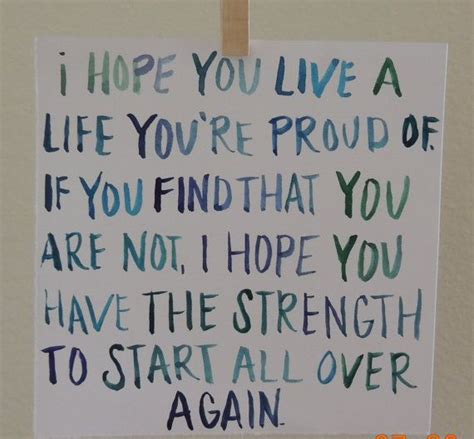 i HOPE YOU LIVE A
LIFE YOU'RE PROUD OF.
IF YOU FIND THAT YOU
ARE NOT, I HOPE YOU
HAVE THE STRENGTH
TO START ALL OVER
AGAIN.